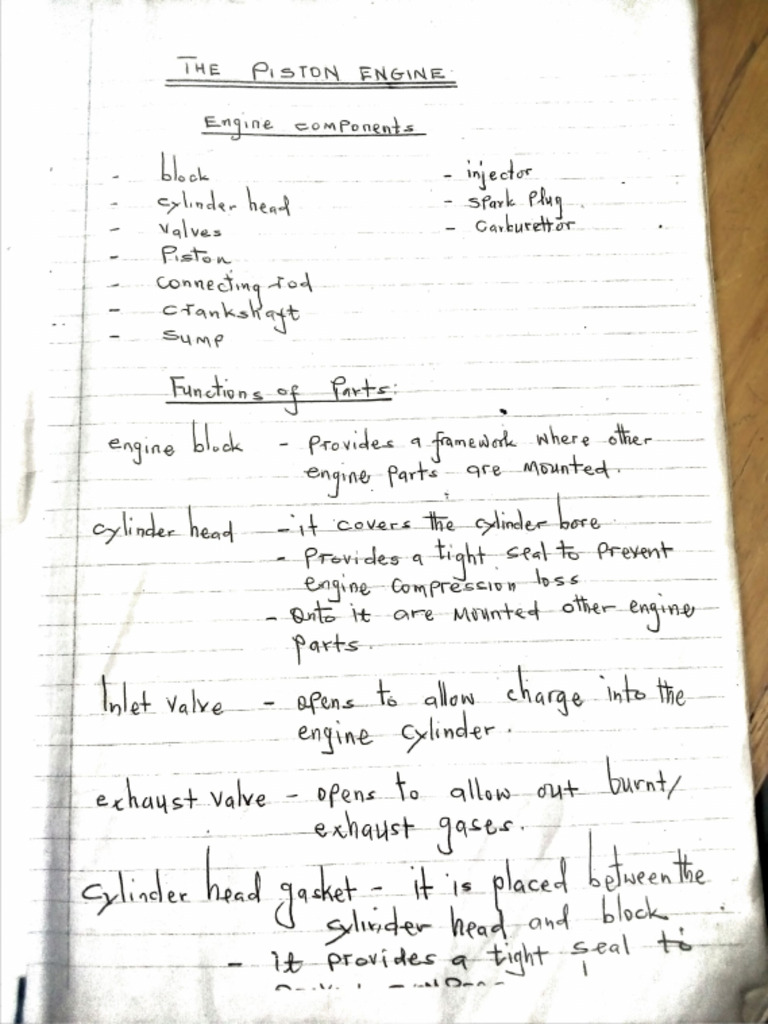 THE PISTON ENGINE
Engine components
- block
- cylinder head
- valves
- Piston
- connecting rod
- crankshaft
- sump
- injector
- spark plug
- carburettor
Functions of Parts:
engine block - provides a framework where other
engine parts are mounted.
cylinder head - it covers the cylinder bore
- provides a tight seal to prevent
engine compression loss
- onto it are mounted other engine
parts.
Inlet valve - opens to allow charge into the
engine cylinder.
exhaust valve - opens to allow out burnt/
exhaust gases.
cylinder head gasket - it is placed between the
cylinder head and block
- it provides a tight seal to